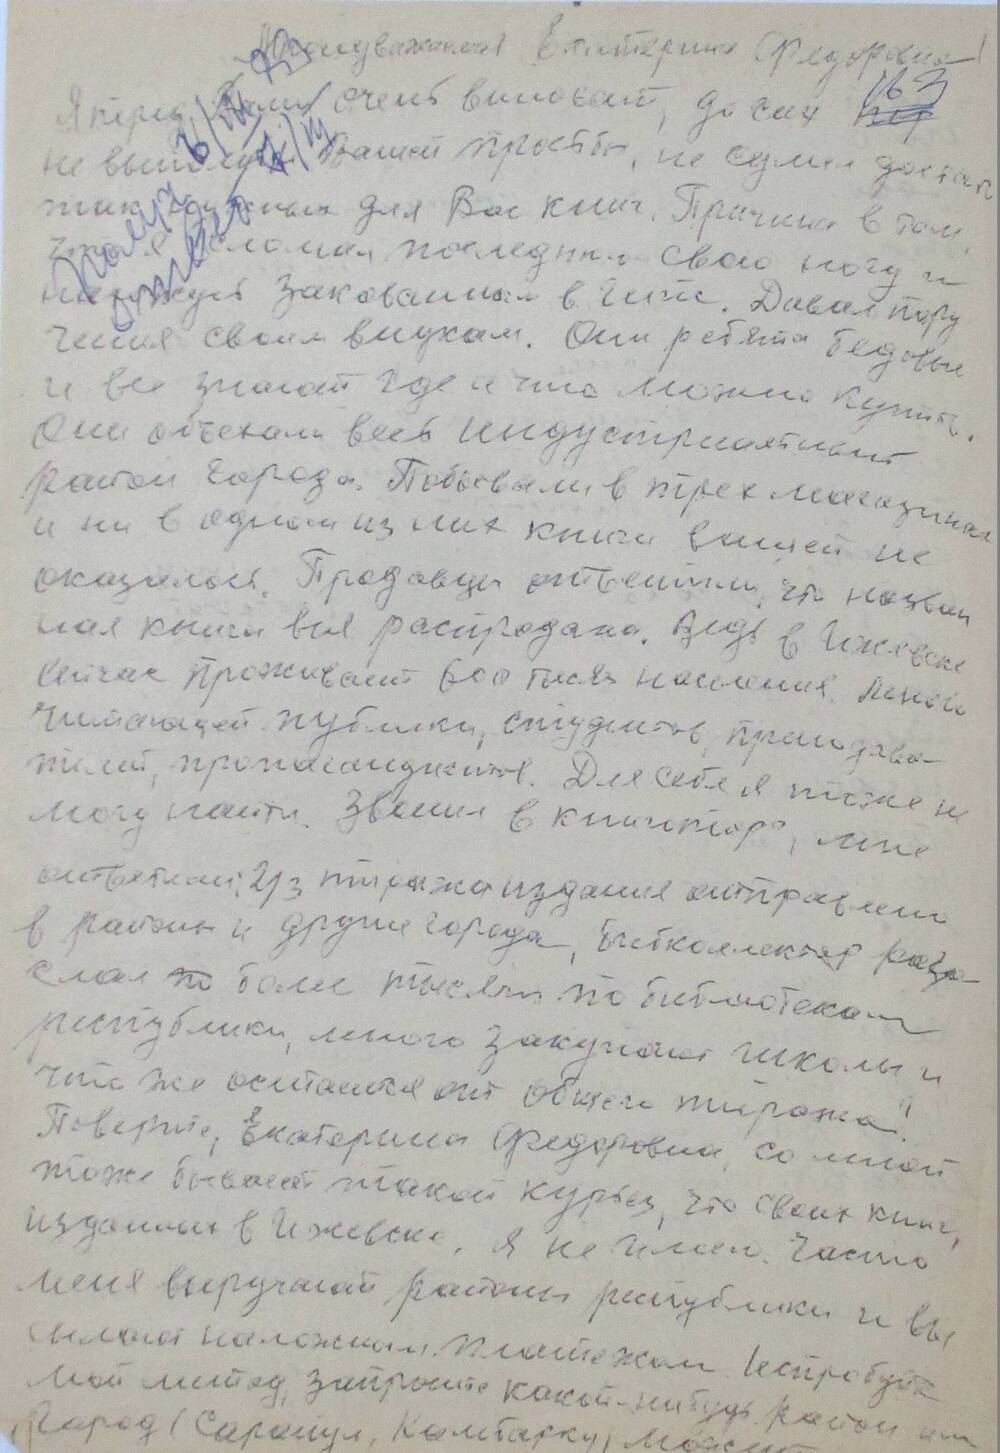 Многоуважаемая Екатерина Федоровна!
Я перед Вами очень виноват, до сих пор
163
не выполнил Вашей просьбы, не сумел достать
так нужных для Вас книг. Причина в том,
что я сломал последнюю свою ногу и
закованным в гипс. Давал пору
чения своим внукам. Они ребята бедовые
и все знают где и что можно купить.
Они объехали весь индустриальный
район города. Побывали в трех магазинах
и ни в одном из них книги вашей не
оказалось. Продавцы ответили, что назван
ная книга вся распродана. Ведь в Ижевске
сейчас проживает 600 тысяч населения. Много
читающей публики, студентов, препода-ва-
телей, пропагандистов. Для себя я тоже не
могу найти. Звонил в книготорг, мне
ответили, 2/3 тиража издания отправлено
в районы и другие города, библколлектор разо-
слал по более тысячи по библиотекам
республики, много закупают школы и
что же остается от общего тиража?
Поверьте, Екатерина Федоровна, со мной
тоже бывает такой курьез, что своих книг,
изданных в Ижевске, я не имею. Часто
меня выручают районы республики и вы
сылают наложным платежом. Испробуйте
мой метод, запросите какой-нибудь район или
город (Сарапул, Камбарку,
Получ
ответ